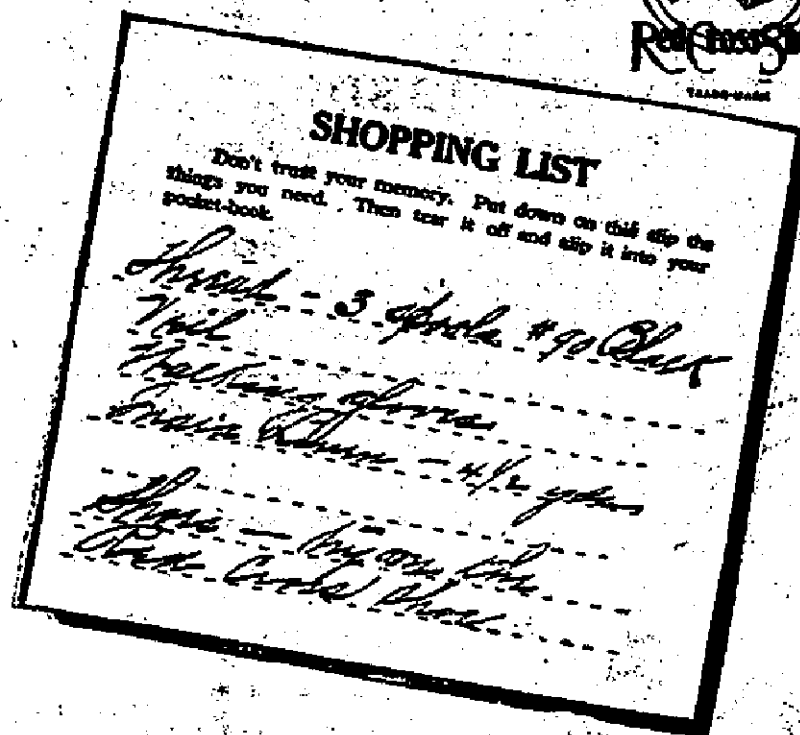 Red Cross Sh
TRADE-MARK
SHOPPING LIST
Don't trust your memory. Put down on this slip the
things you need. Then tear it off and slip it into your
pocket-book.
Thread - 3 spools #90 Black
Veil
Walking gloves
India Linen - 4 1/2 yds
Shoes - try on the
Red Cross Shoe